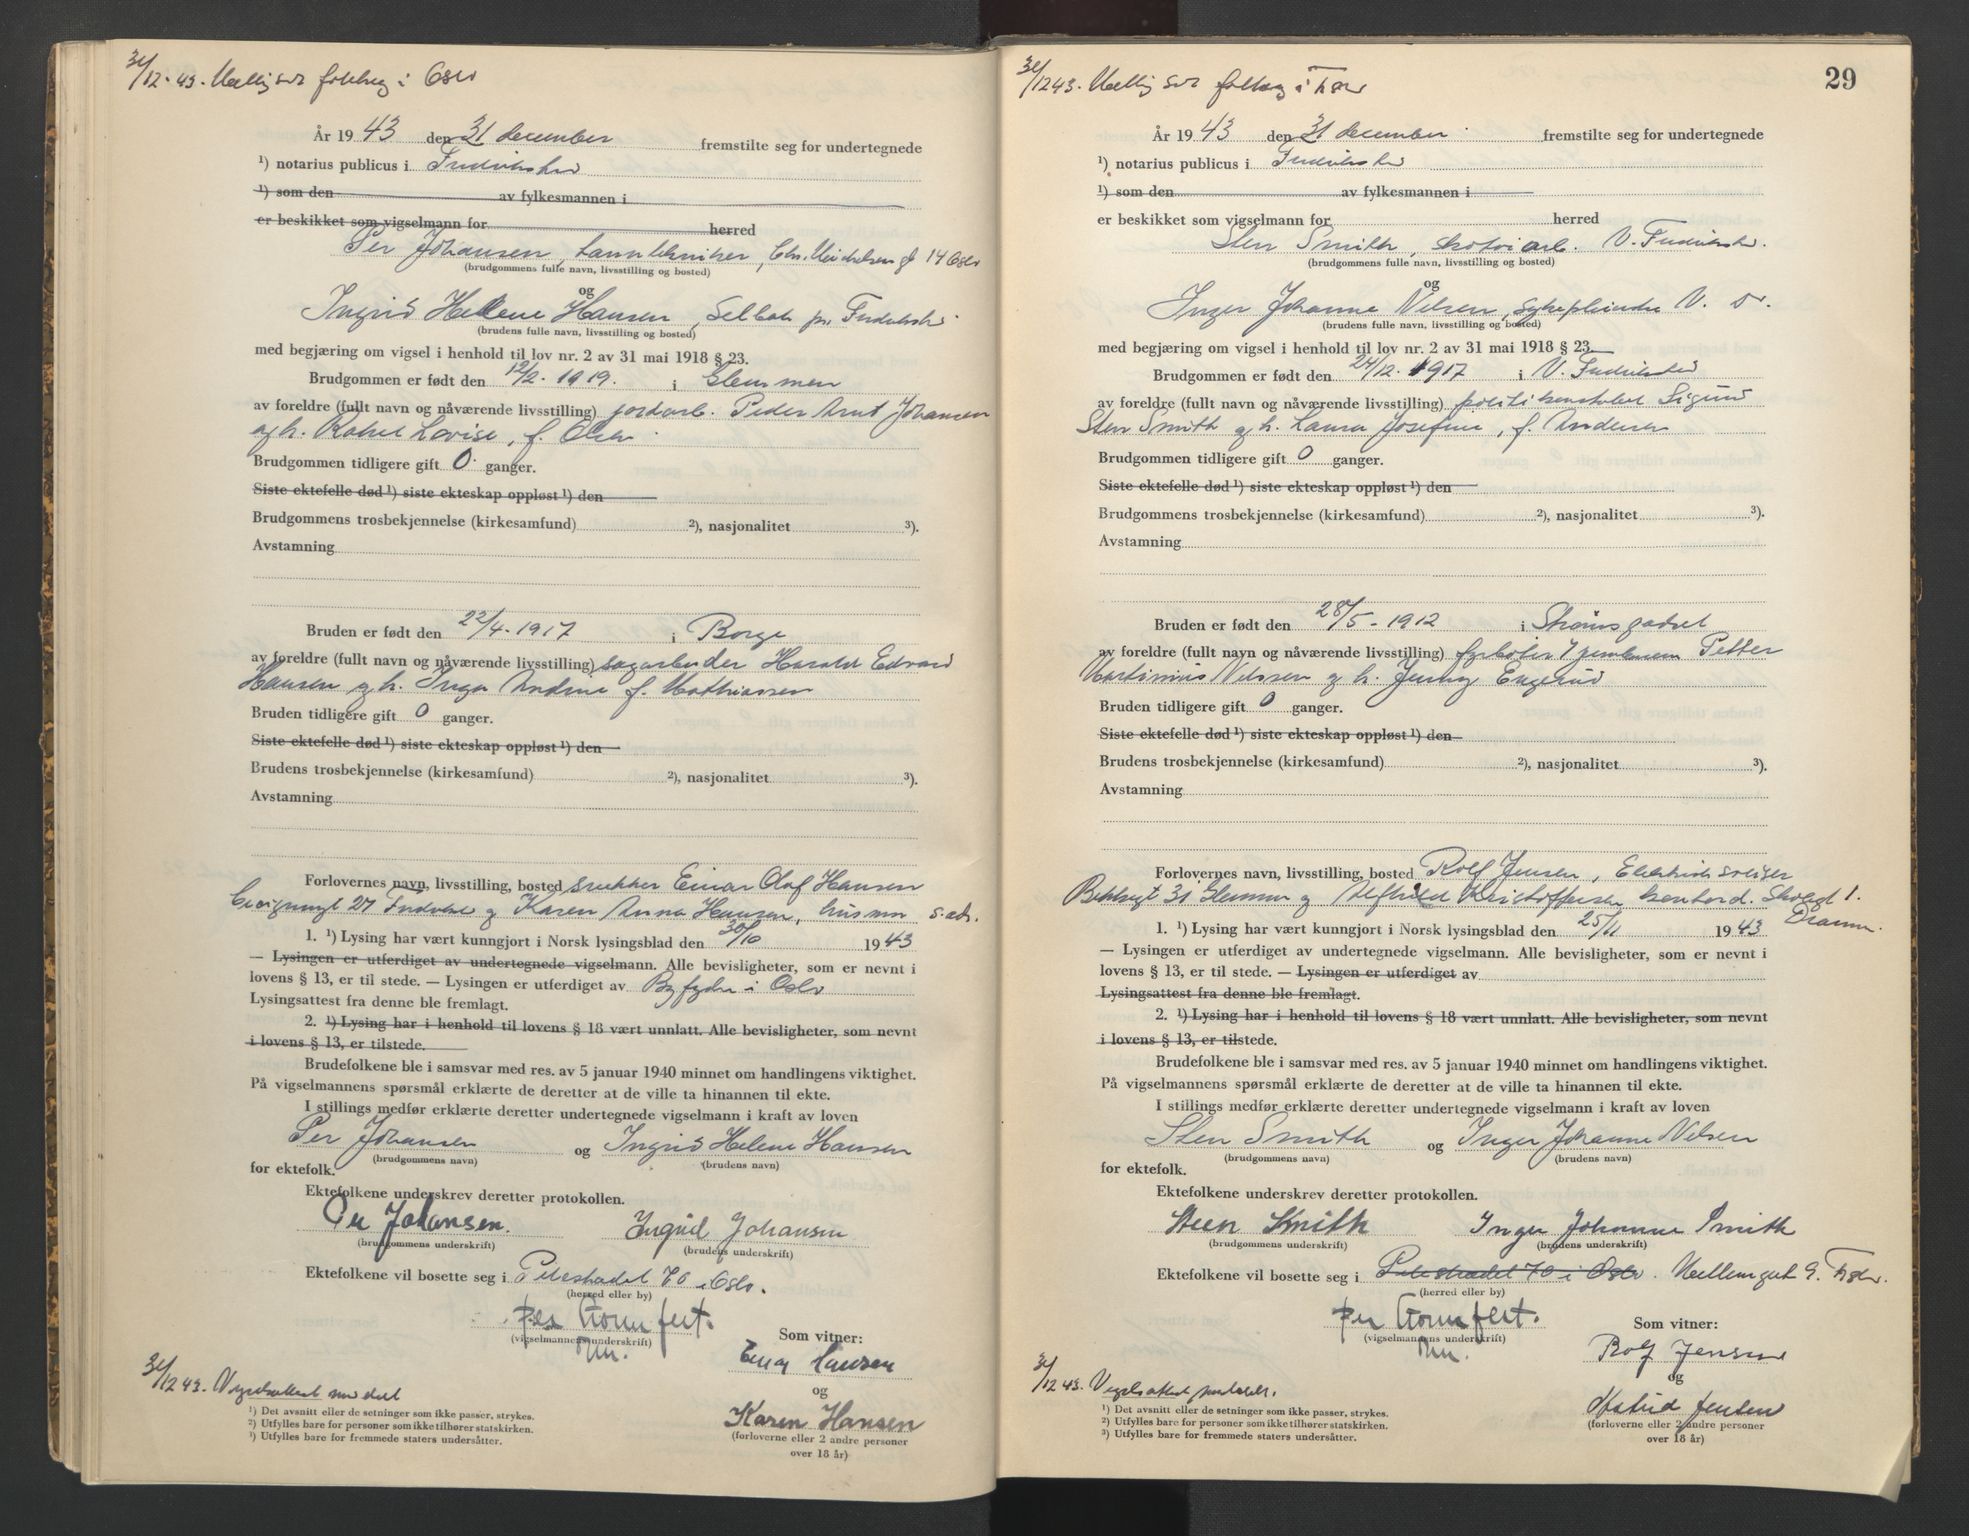 31/12-43. i Oslo
År 1943 den 31 december fremstilte seg for undertegnede
¹) notarius publicus i
¹) som den av fylkesmannen i
er beskikket som vigselmann for herred
Per Johansen, 14 Oslo
(brudgommens fulle navn, livsstilling og bosted)
og
Ingrid Helene Hansen, Selbak pr.
(brudens fulle navn, livsstilling og bosted)
med begjæring om vigsel i henhold til lov nr. 2 av 31 mai 1918 § 23.
Brudgommen er født den 12/2-1919. i Glemmen
av foreldre (fullt navn og nåværende livsstilling) jordarb. Peder Arnt Johansen
og h. Lovise, f. Olsen
Brudgommen tidligere gift 0 ganger.
Siste ektefelle død ¹) siste ekteskap oppløst ¹) den
Brudgommens trosbekjennelse (kirkesamfund) ²), nasjonalitet ³).
Avstamning
Bruden er født den 22/4-1917 i Borge
av foreldre (fullt navn og nåværende livsstilling) sagarbeider Harald Edvard
Hansen og h. Inga Andrine f. Mathiassen
Bruden tidligere gift 0 ganger.
Siste ektefelle død ¹) siste ekteskap oppløst ¹) den
Brudens trosbekjennelse (kirkesamfund) ²), nasjonalitet ³).
Avstamning
Forlovernes navn, livsstilling, bosted snekker Einar Olaf Hansen
27 og Karen Anna Hansen, s. ads.
1. ¹) Lysing har vært kunngjort i Norsk lysingsblad den 30/10 1943
— Lysingen er utferdiget av undertegnede vigselmann. Alle bevisligheter, som er nevnt i
lovens § 13, er til stede. — Lysingen er utferdiget av Byfogden i Oslo
Lysingsattest fra denne ble fremlagt.
2. ¹) Lysing har i henhold til lovens § 18 vært unnlatt. Alle bevisligheter, som nevnt
i lovens § 13, er tilstede.
Brudefolkene ble i samsvar med res. av 5 januar 1940 minnet om handlingens viktighet.
På vigselmannens spørsmål erklærte de deretter at de ville ta hinannen til ekte.
I stillings medfør erklærte deretter undertegnede vigselmann i kraft av loven
Per Johansen og Ingrid Helene Hansen
(brudgommens navn) (brudens navn)
for ektefolk.
Ektefolkene underskrev deretter protokollen.
Per Johansen. Ingrid Johansen
(brudgommens underskrift) (brudens underskrift)
Ektefolkene vil bosette seg i Pilestredet 70 i Oslo.
(herred eller by)
(vigselmannens underskrift)
Som vitner:
Einar Hansen
og
31/12 43. Vigselsattest
Karen Hansen
(forloverne eller 2 andre personer
over 18 år)
¹) Det avsnitt eller de setninger som ikke passer, strykes.
²) Utfylles bare for personer som ikke tilhører statskirken.
³) Utfylles bare for fremmede staters undersåtter.
29
31/12 43.
År 1943 den 31 december fremstilte seg for undertegnede
¹) notarius publicus i
¹) som den av fylkesmannen i
er beskikket som vigselmann for herred
Sten Smith, skotøiarb. V.
(brudgommens fulle navn, livsstilling og bosted)
og
Inger Johanne Nilsen, V.
(brudens fulle navn, livsstilling og bosted)
med begjæring om vigsel i henhold til lov nr. 2 av 31 mai 1918 § 23
Brudgommen er født den 24/12. 1917 i V.
av foreldre (fullt navn og nåværende livsstilling) politikonstabel Sigurd
Sten Smith og h. Laura Josefine, f. Andersen
Brudgommen tidligere gift 0 ganger.
Siste ektefelle død ¹) siste ekteskap oppløst ¹) den
Brudgommens trosbekjennelse (kirkesamfund) ²), nasjonalitet ³).
Avstamning
Bruden er født den 28/5-1912 i Strømsgodset
av foreldre (fullt navn og nåværende livsstilling) fyrbøter Petter
Martinius Nilssen og h. Jenny Engerud
Bruden tidligere gift 0 ganger.
Siste ektefelle død ¹) siste ekteskap oppløst ¹) den
Brudens trosbekjennelse (kirkesamfund) ²), nasjonalitet ³).
Avstamning
Forlovernes navn, livsstilling, bosted Rolf Jensen,
31 Glemmen og Kristoffersen 1.
1. ¹) Lysing har vært kunngjort i Norsk lysingsblad den 25/11 1943
— Lysingen er utferdiget av undertegnede vigselmann. Alle bevisligheter, som er nevnt i
lovens § 13, er til stede. — Lysingen er utferdiget av
Lysingsattest fra denne ble fremlagt.
2. ¹) Lysing har i henhold til lovens § 18 vært unnlatt. Alle bevisligheter, som nevnt
i lovens § 13, er tilstede.
Brudefolkene ble i samsvar med res. av 5 januar 1940 minnet om handlingens viktighet.
På vigselmannens spørsmål erklærte de deretter at de ville ta hinannen til ekte.
I stillings medfør erklærte deretter undertegnede vigselmann i kraft av loven
Sten Smith og Inger Johanne Nilsen
(brudgommens navn) (brudens navn)
for ektefolk.
Ektefolkene underskrev deretter protokollen.
Steen Smith Inger Johanne Smith
(brudgommens underskrift) (brudens underskrift)
Ektefolkene vil bosette seg i Pilestredet 70 i Oslo. 9.
(herred eller by)
(vigselmannens underskrift)
Som vitner:
Rolf Jensen
og
31/12 43. Vigselsattest
Astrid Jensen
(forloverne eller 2 andre personer
over 18 år)
¹) Det avsnitt eller de setninger som ikke passer, strykes.
²) Utfylles bare for personer som ikke tilhører statskirken.
³) Utfylles bare for fremmede staters undersåtter.